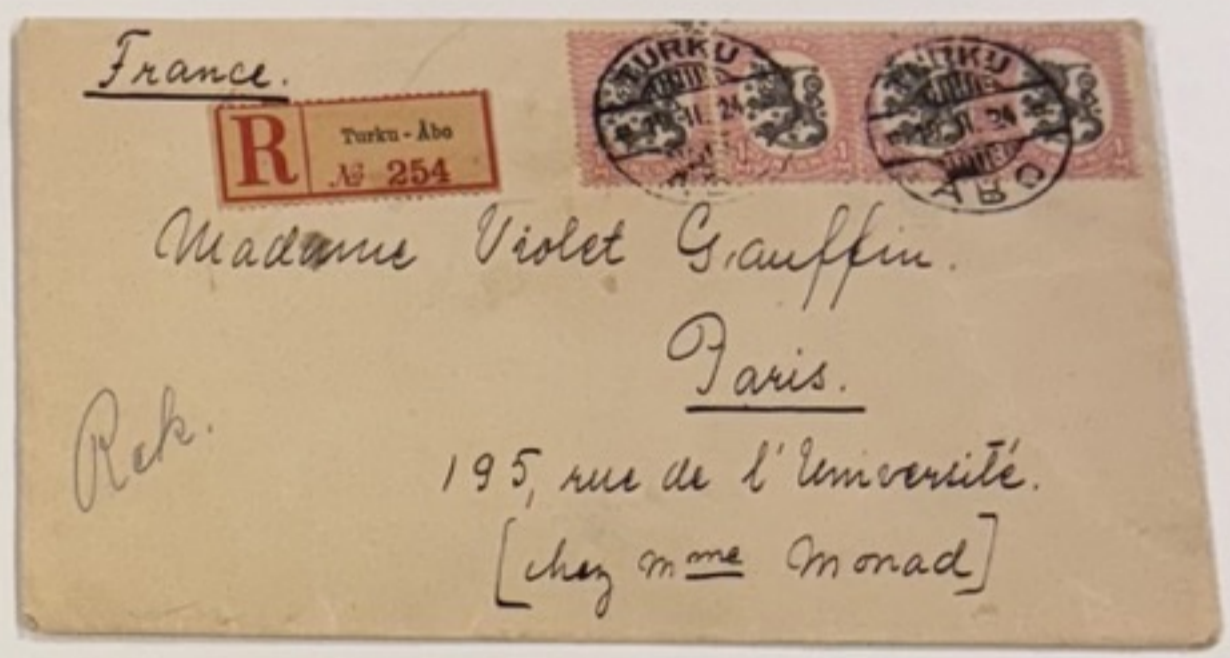 France.
R Turku - Åbo
№ 254
TURKU
19. II. 24
TURKU
19. II. 24
ÅBO
Madame Violet Gauffin.
Paris.
195, rue de l'Université.
[chez Mme Monad]
Rek.